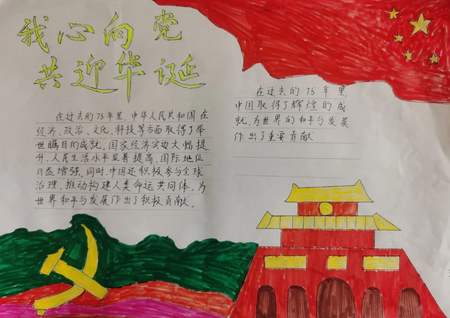 我心向党
共迎华诞
在过去的75年里，中华人民共和国在
经济、政治、文化、科技等方面取得了举
世瞩目的成就，国家经济实力大幅提
升，人民生活水平显著提高，国际地位
日益增强，同时，中国还积极参与全球
治理，推动构建人类命运共同体，为
世界和平与发展作出了积极贡献。
在过去的75年里
中国取得了辉煌的成
就，为世界的和平与发展
作出了重要贡献